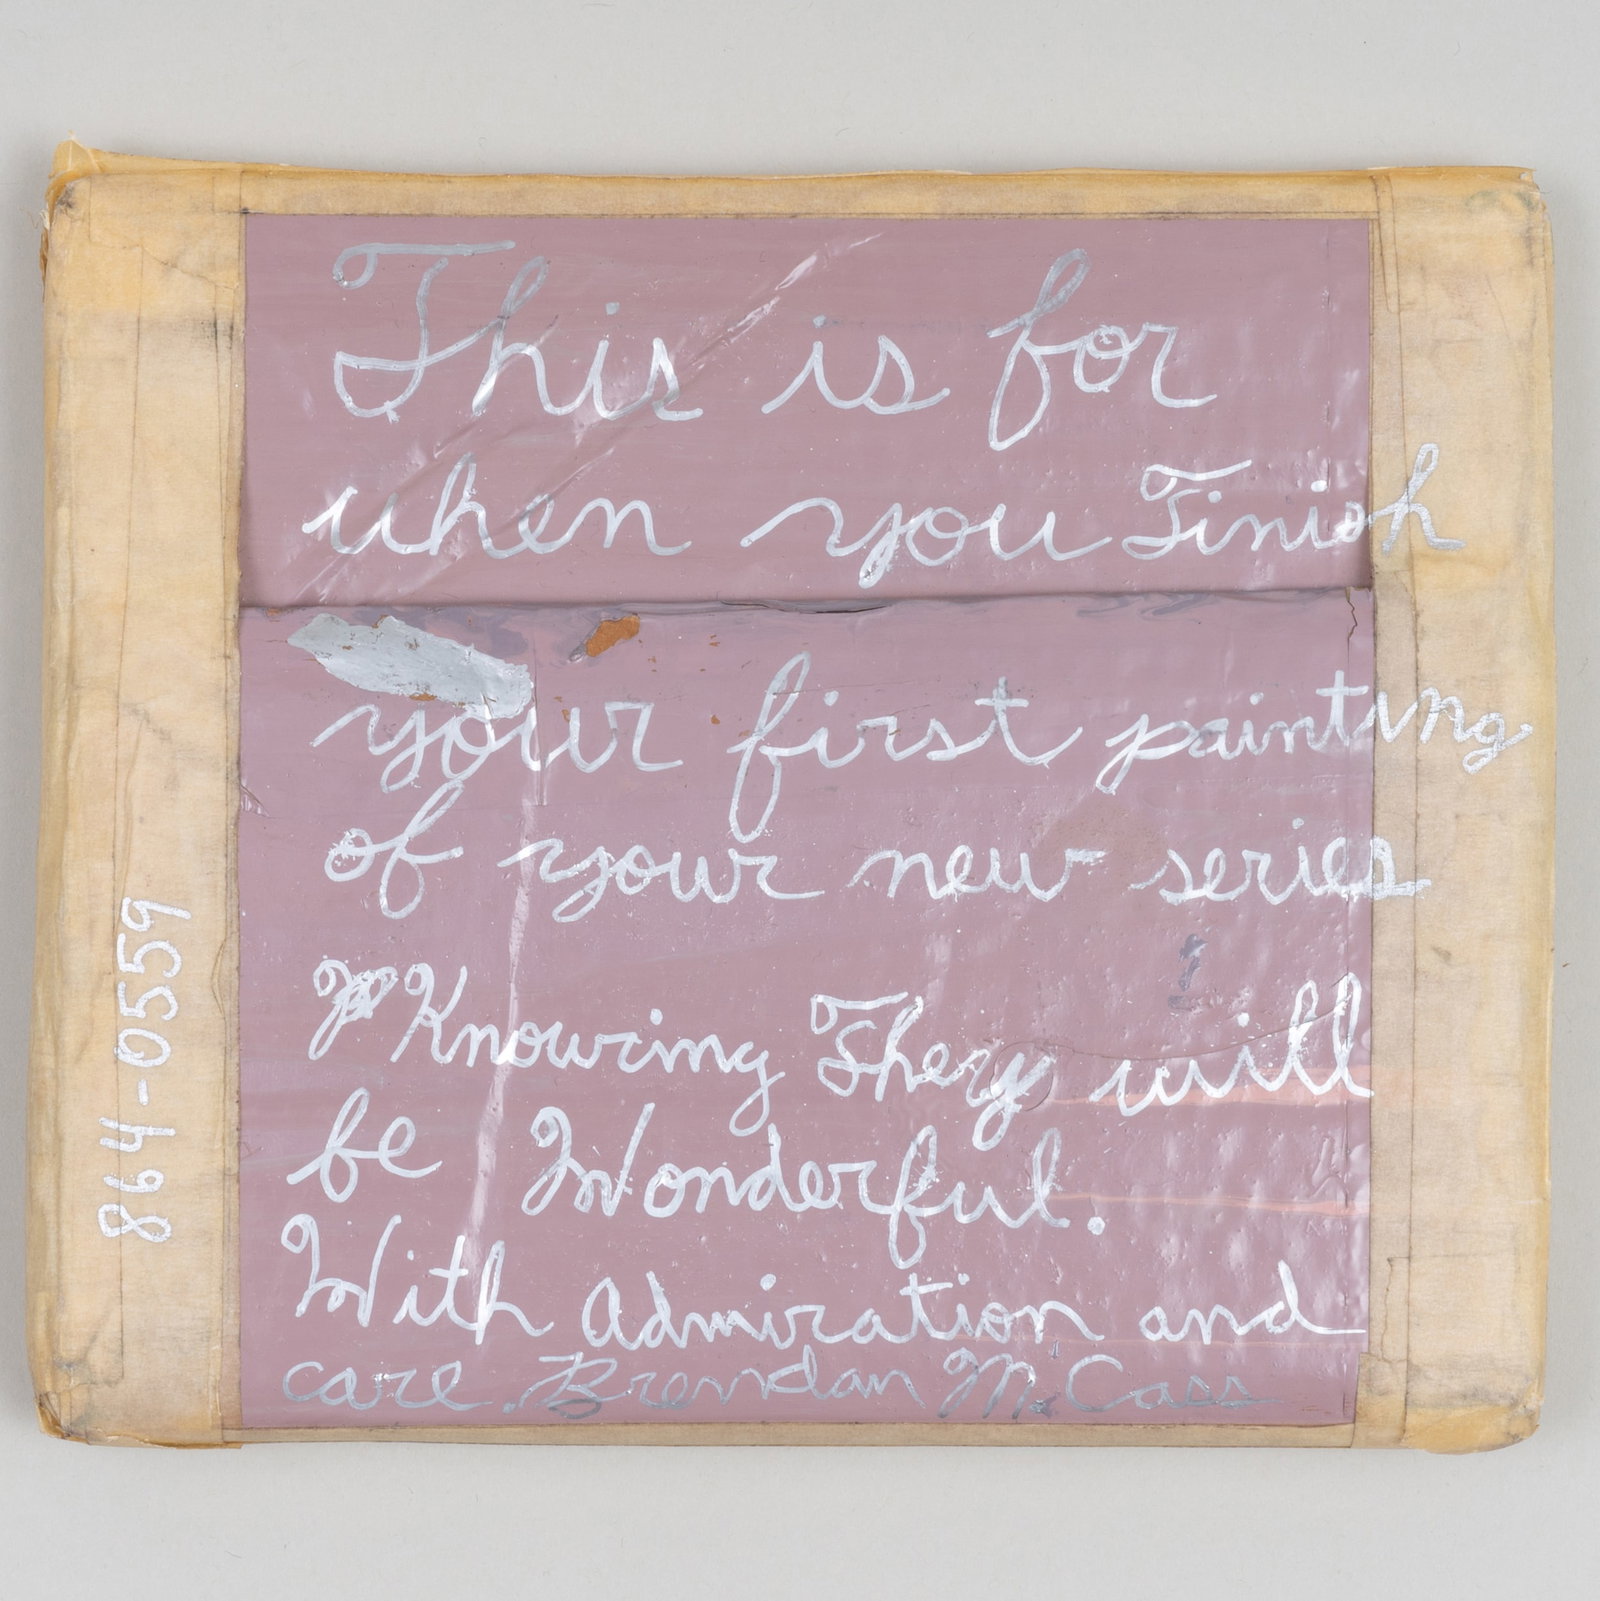 This is for
when you Finish
your first painting
of your new series
Knowing They will
be Wonderful.
With Admiration and
care. Brendan M. Cass
864-0559